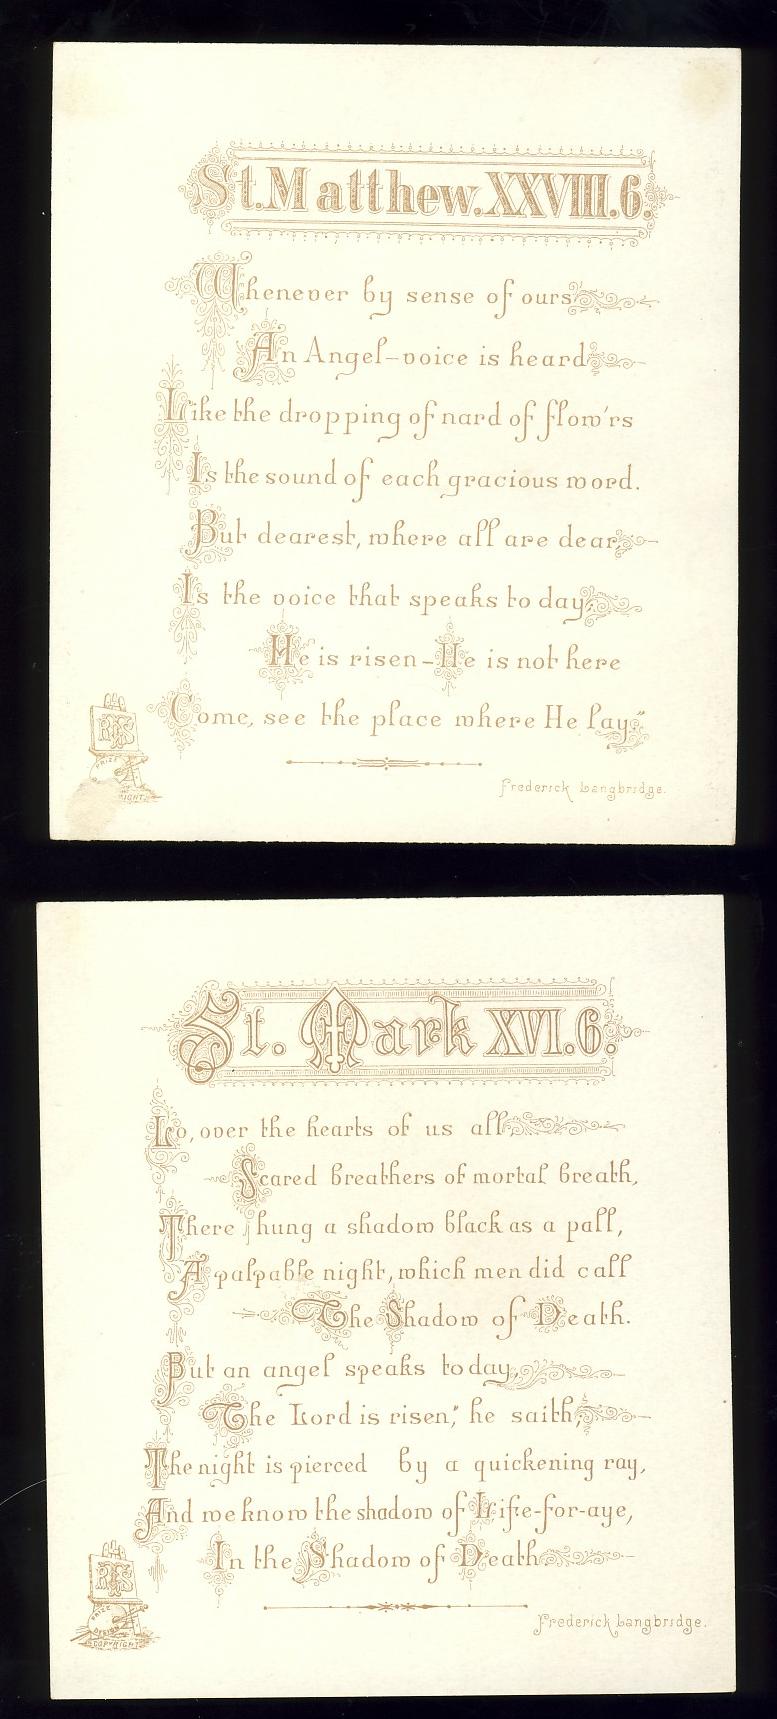 St. Matthew. XXVIII. 6.
Whenever by sense of ours
An Angel-voice is heard
Like the dropping of nard of flow'rs
Is the sound of each gracious word.
But dearest, where all are dear,
Is the voice that speaks to day,
He is risen - He is not here
Come, see the place where He lay."
RTS
PRIZE
Frederick Langbridge.
St. Mark XVI. 6.
Lo, over the hearts of us all
Scared breathers of mortal breath,
There hung a shadow black as a pall,
A palpable night, which men did call
The Shadow of Death.
But an angel speaks to day,
"The Lord is risen," he saith,
The night is pierced by a quickening ray,
And we know the shadow of Life-for-aye,
In the Shadow of Death
RTS
PRIZE
DESIGN
COPYRIGHT
Frederick Langbridge.